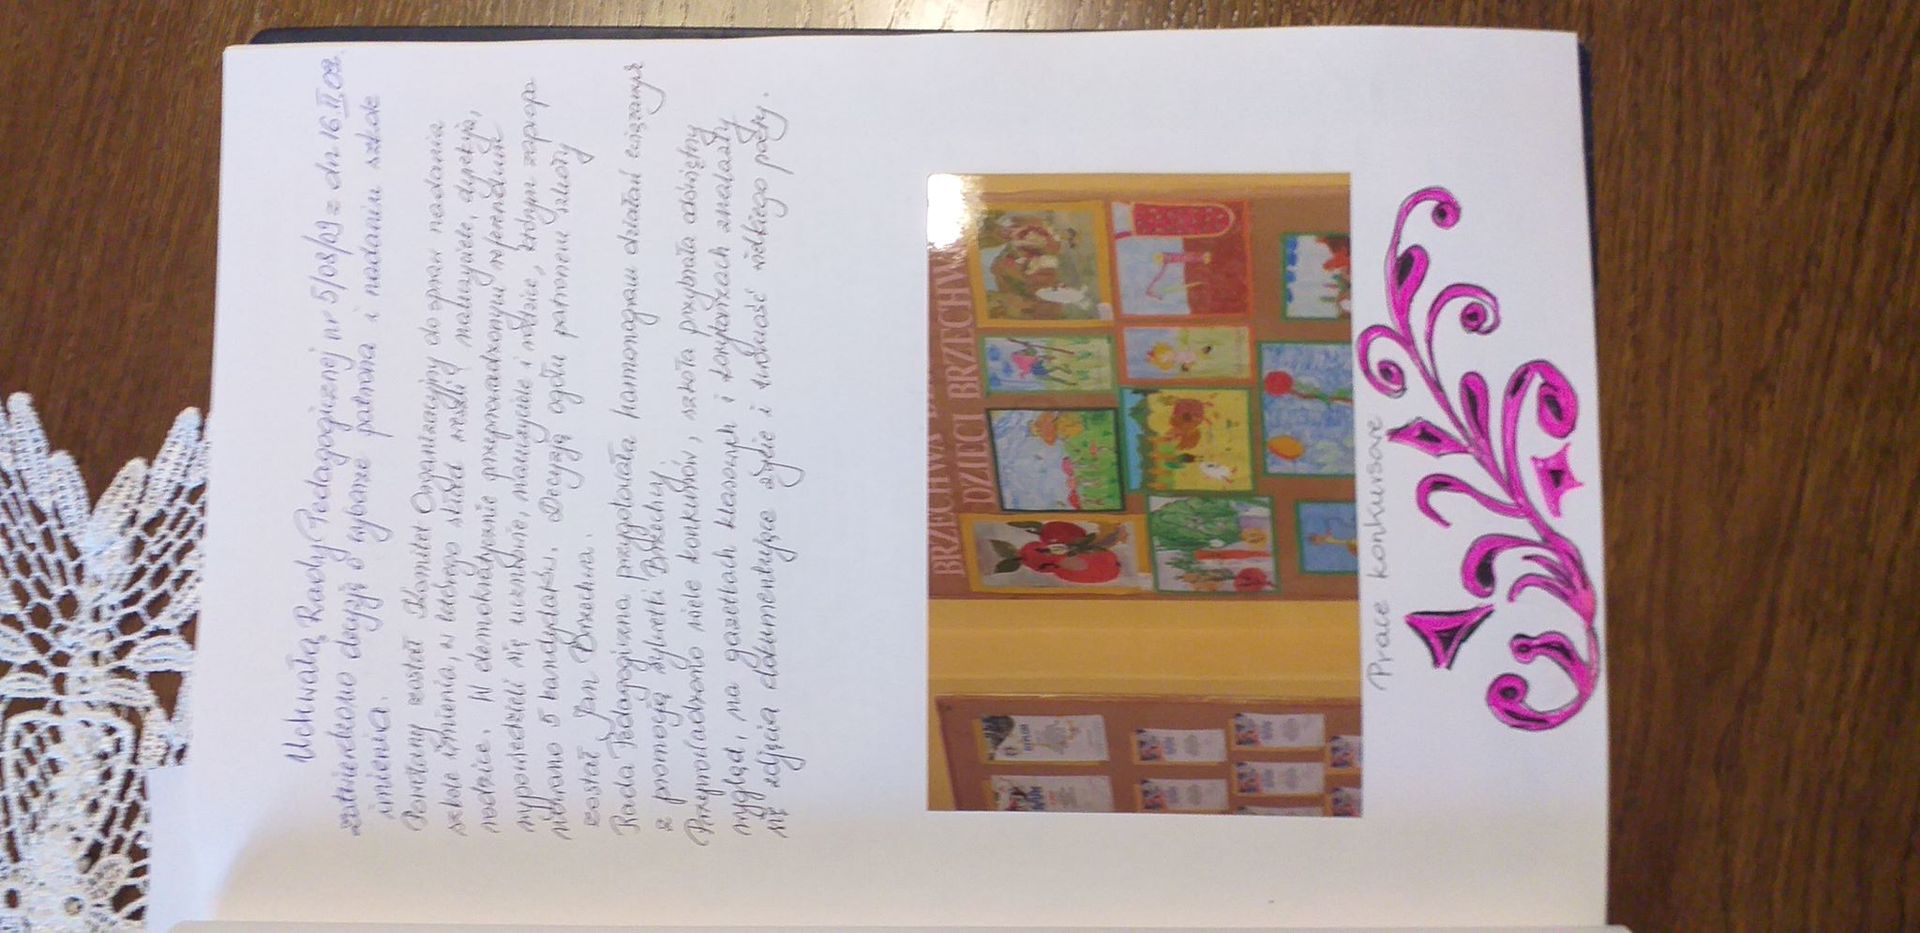 Uchwałą Rady Pedagogicznej nr 5/08/09 z dn 16 II 09.
zatwierdzono decyzję o wyborze patrona i nadaniu szkole
imienia.
Powołany został Komitet Organizacyjny do spraw nadania
szkole imienia, w którego skład weszli nauczyciele, dyrekcja,
rodzice. W demokratycznie przeprowadzonym referendum
wypowiedzieli się uczniowie, nauczyciele i rodzice, którym zapropo
nowano 5 kandydatów. Decyzją ogółu patronem szkoły
został Jan Brzechwa.
Rada Pedagogiczna przygotowała harmonogram działań związanych
z promocją sylwetki Brzechwy.
Przeprowadzono wiele konkursów, szkoła przybrała odświętny
wygląd, na gazetkach klasowych i korytarzach znalazły
się zdjęcia dokumentujące życie i twórczość wielkiego poety.
BRZECHWA
DZIECI BRZECHW
Prace konkursowe